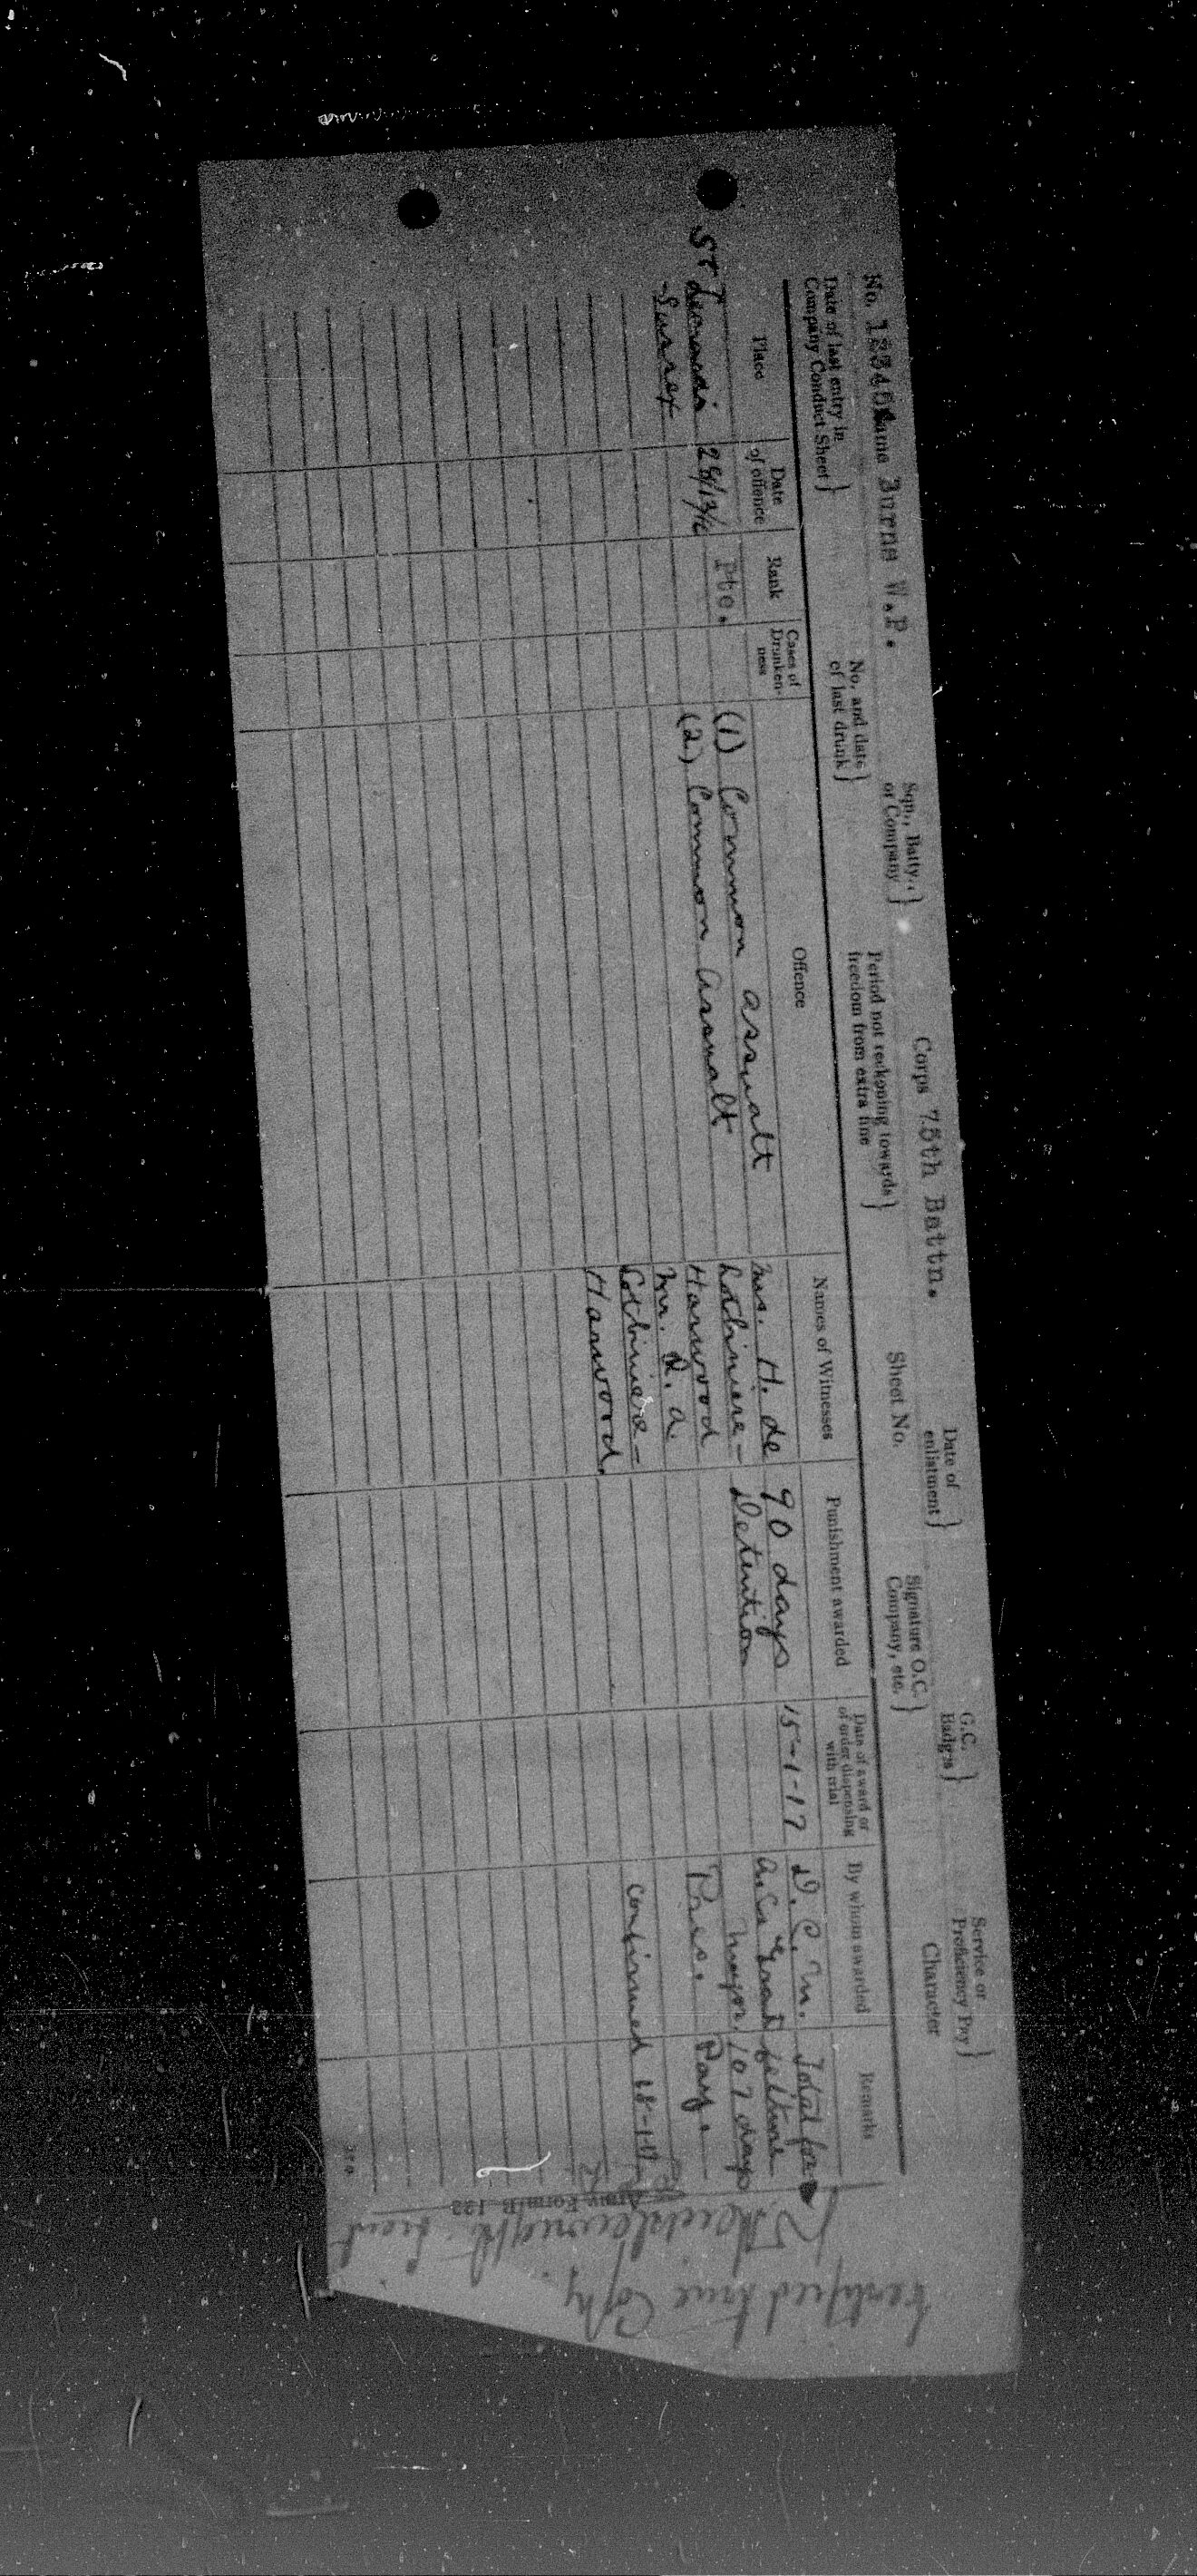 No. Name Burns W.P. Sqn., Batty., or Company} Corps 75th Battn. Date of enlistment} G.C. Badges} Service or Proficiency Pay}
Date of last entry in Company Conduct Sheet} No. and date of last drunk} Period not reckoning towards freedom from extra fine} Sheet No. Signature O.C. Company, etc.} Character
Place Date of offence Rank Cases of Drunken-ness Offence Names of Witnesses Punishment awarded Date of award or of order dispensing with trial By whom awarded Remarks
St Leonards Pte. (1) Common assault Mrs. H. de 90 days 15-1-17 D.C.M. Total for
(2) Common assault Lotbiniere- Detention feiture
Harwood Major 107 days
Mr. R. A. Pres. Pay.
Lotbiniere-
Harwood. Confirmed
Army Form B. 122
Certified true Copy
Lieut